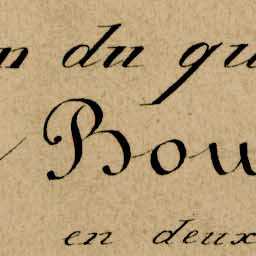 n du qu
Bou
en deux